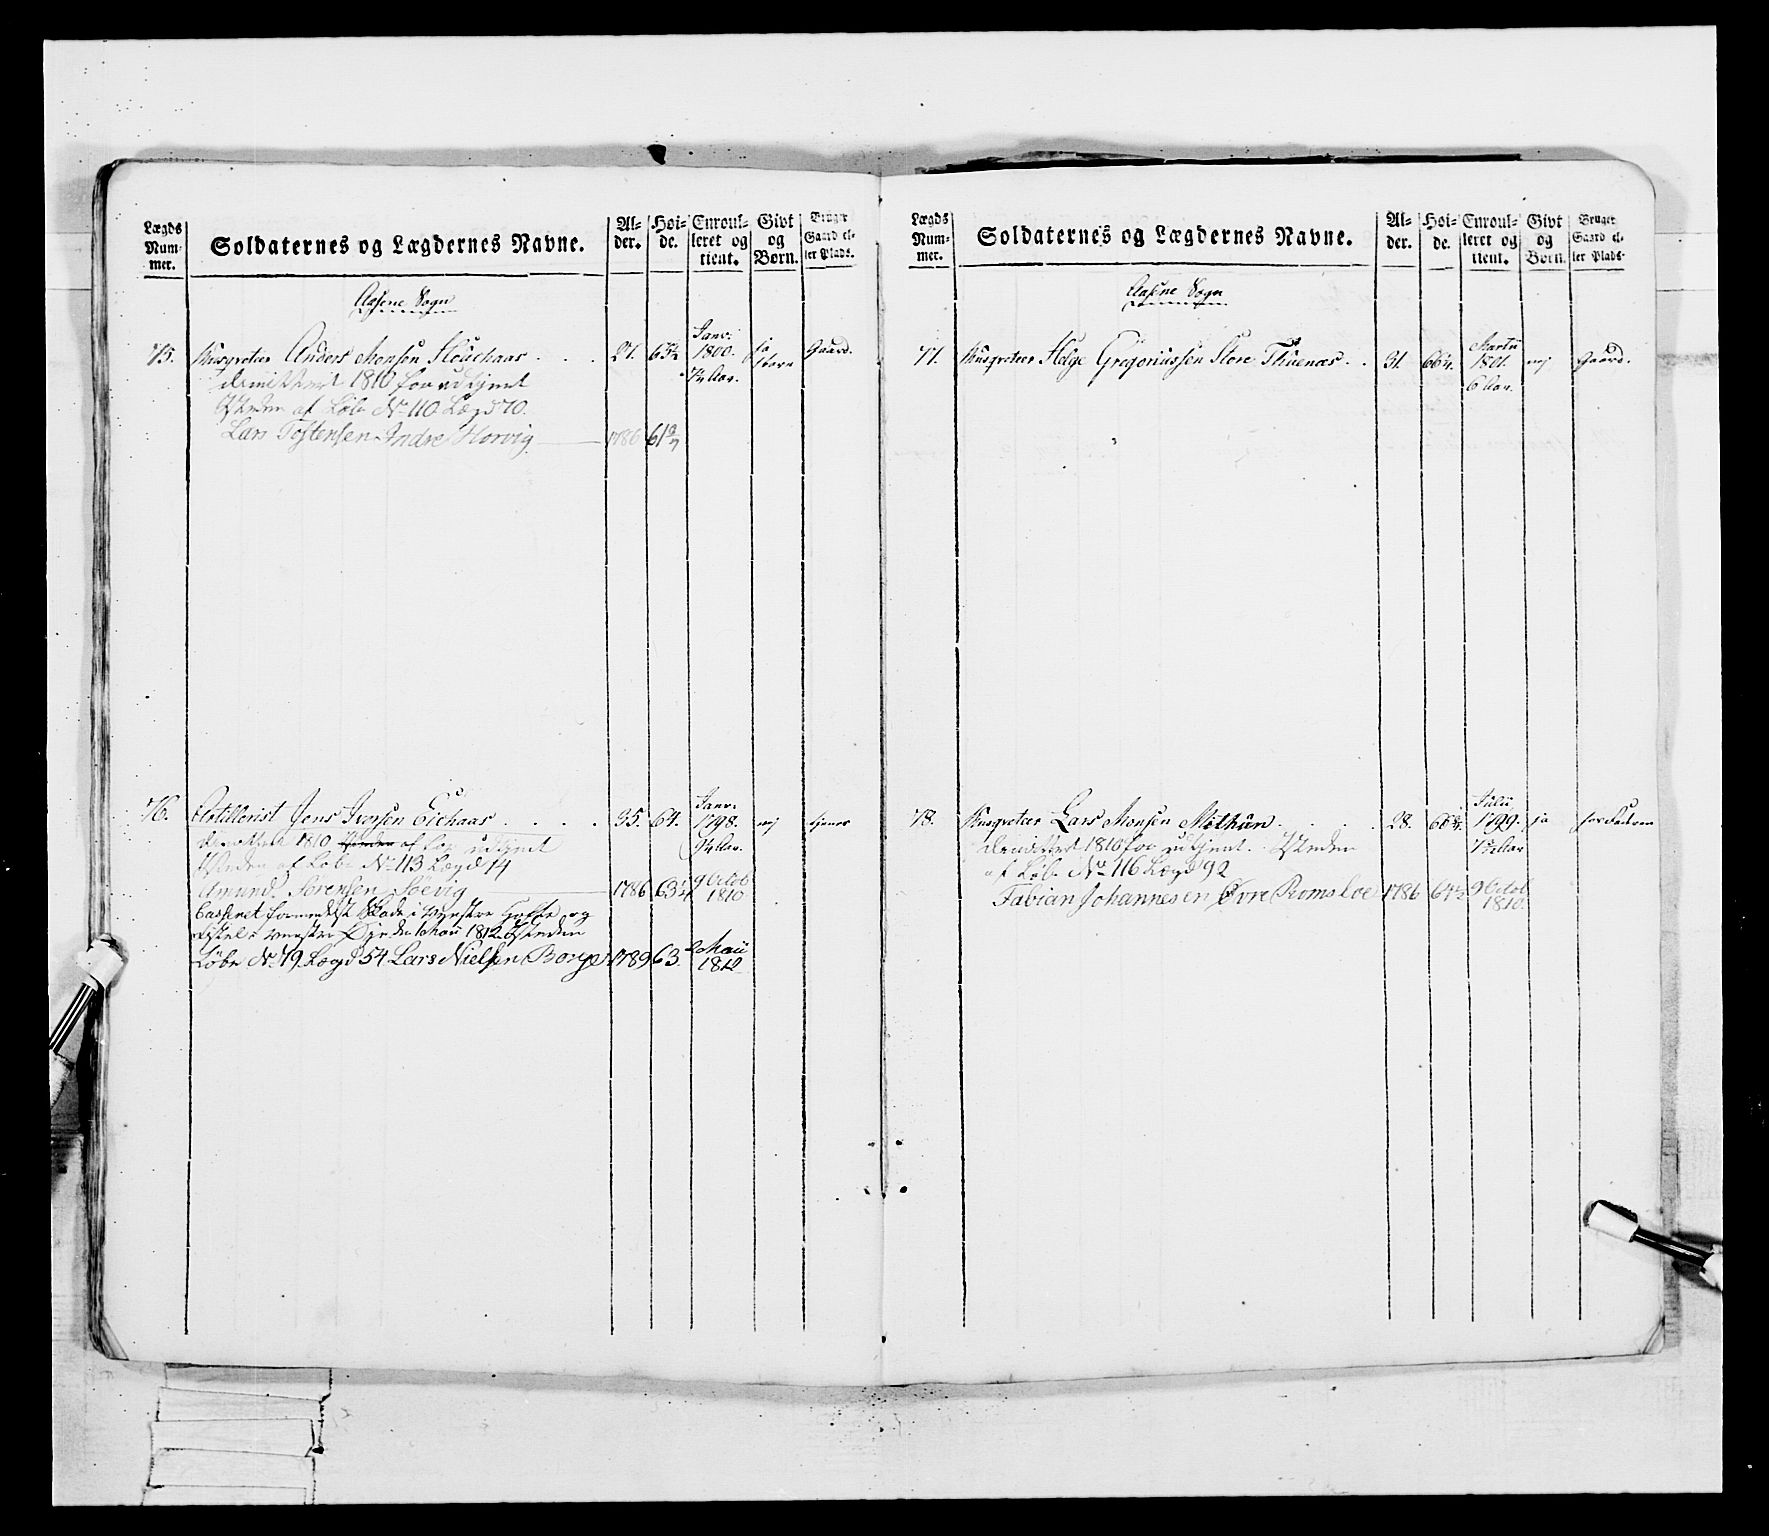 Lægds Num- mer. Soldaternes og Lægdernes Navne. Al- der. Høi- de. Enroul- leret og tient. Givt og Børn. Bruger Gaard el- ler Plads.
Aasene Sogn
75. Musqveteer Anders Monsen 27. 63½ Janv: 1800. ja Gaard.
dimitteret 1810 for udtjent
Isteden af Løb No 110 Lægd 70.
Lars Tostensen Indre Horvig 1786 61
76. Artillerist Jens Iversen Eichaas 35. 64. Janv: 1798. nej tjener
dimitteret 1810 Isteden af for udtjent
Isteden af Løb No 113 Lægd 74
Amund Sørensen Søevig 1786 63 9 Octob 1810
Casseret formedelst Skade i venstre Hofte og
venstre Øye den 1 Maii 1812. Isteden
Løbe No 79 Lægd 54 Lars Nielsen Borge 1789 63. 2 Maii 1812
Lægds Num- mer. Soldaternes og Lægdernes Navne. Al- der. Høi- de. Enroul- leret og tient. Givt og Børn. Bruger Gaard el- ler Plads.
Aasene Sogn
77. Musqveteer Helge Gregoriussen Store Thuenæs 31. 66¼. Martii 1801. 6 Aar. nej Gaard.
78. Musqveteer Lars Monsen Mithun 28. Julii 1799. 7½ Aar ja
Demitteret 1810 for udtjent. Isteden
af Løb No 116 Lægd 92
Fabian Johannesen Øvre Romsloe 1786 64½ 9 Octob 1810.